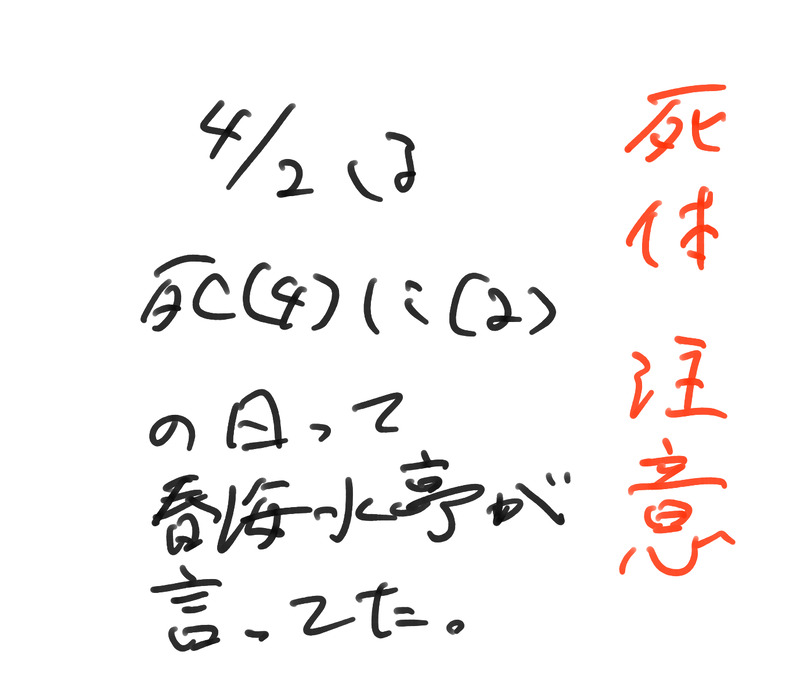 死体注意
4/2は
死(4)に(2)
の日って
春海水亭が
言ってた。